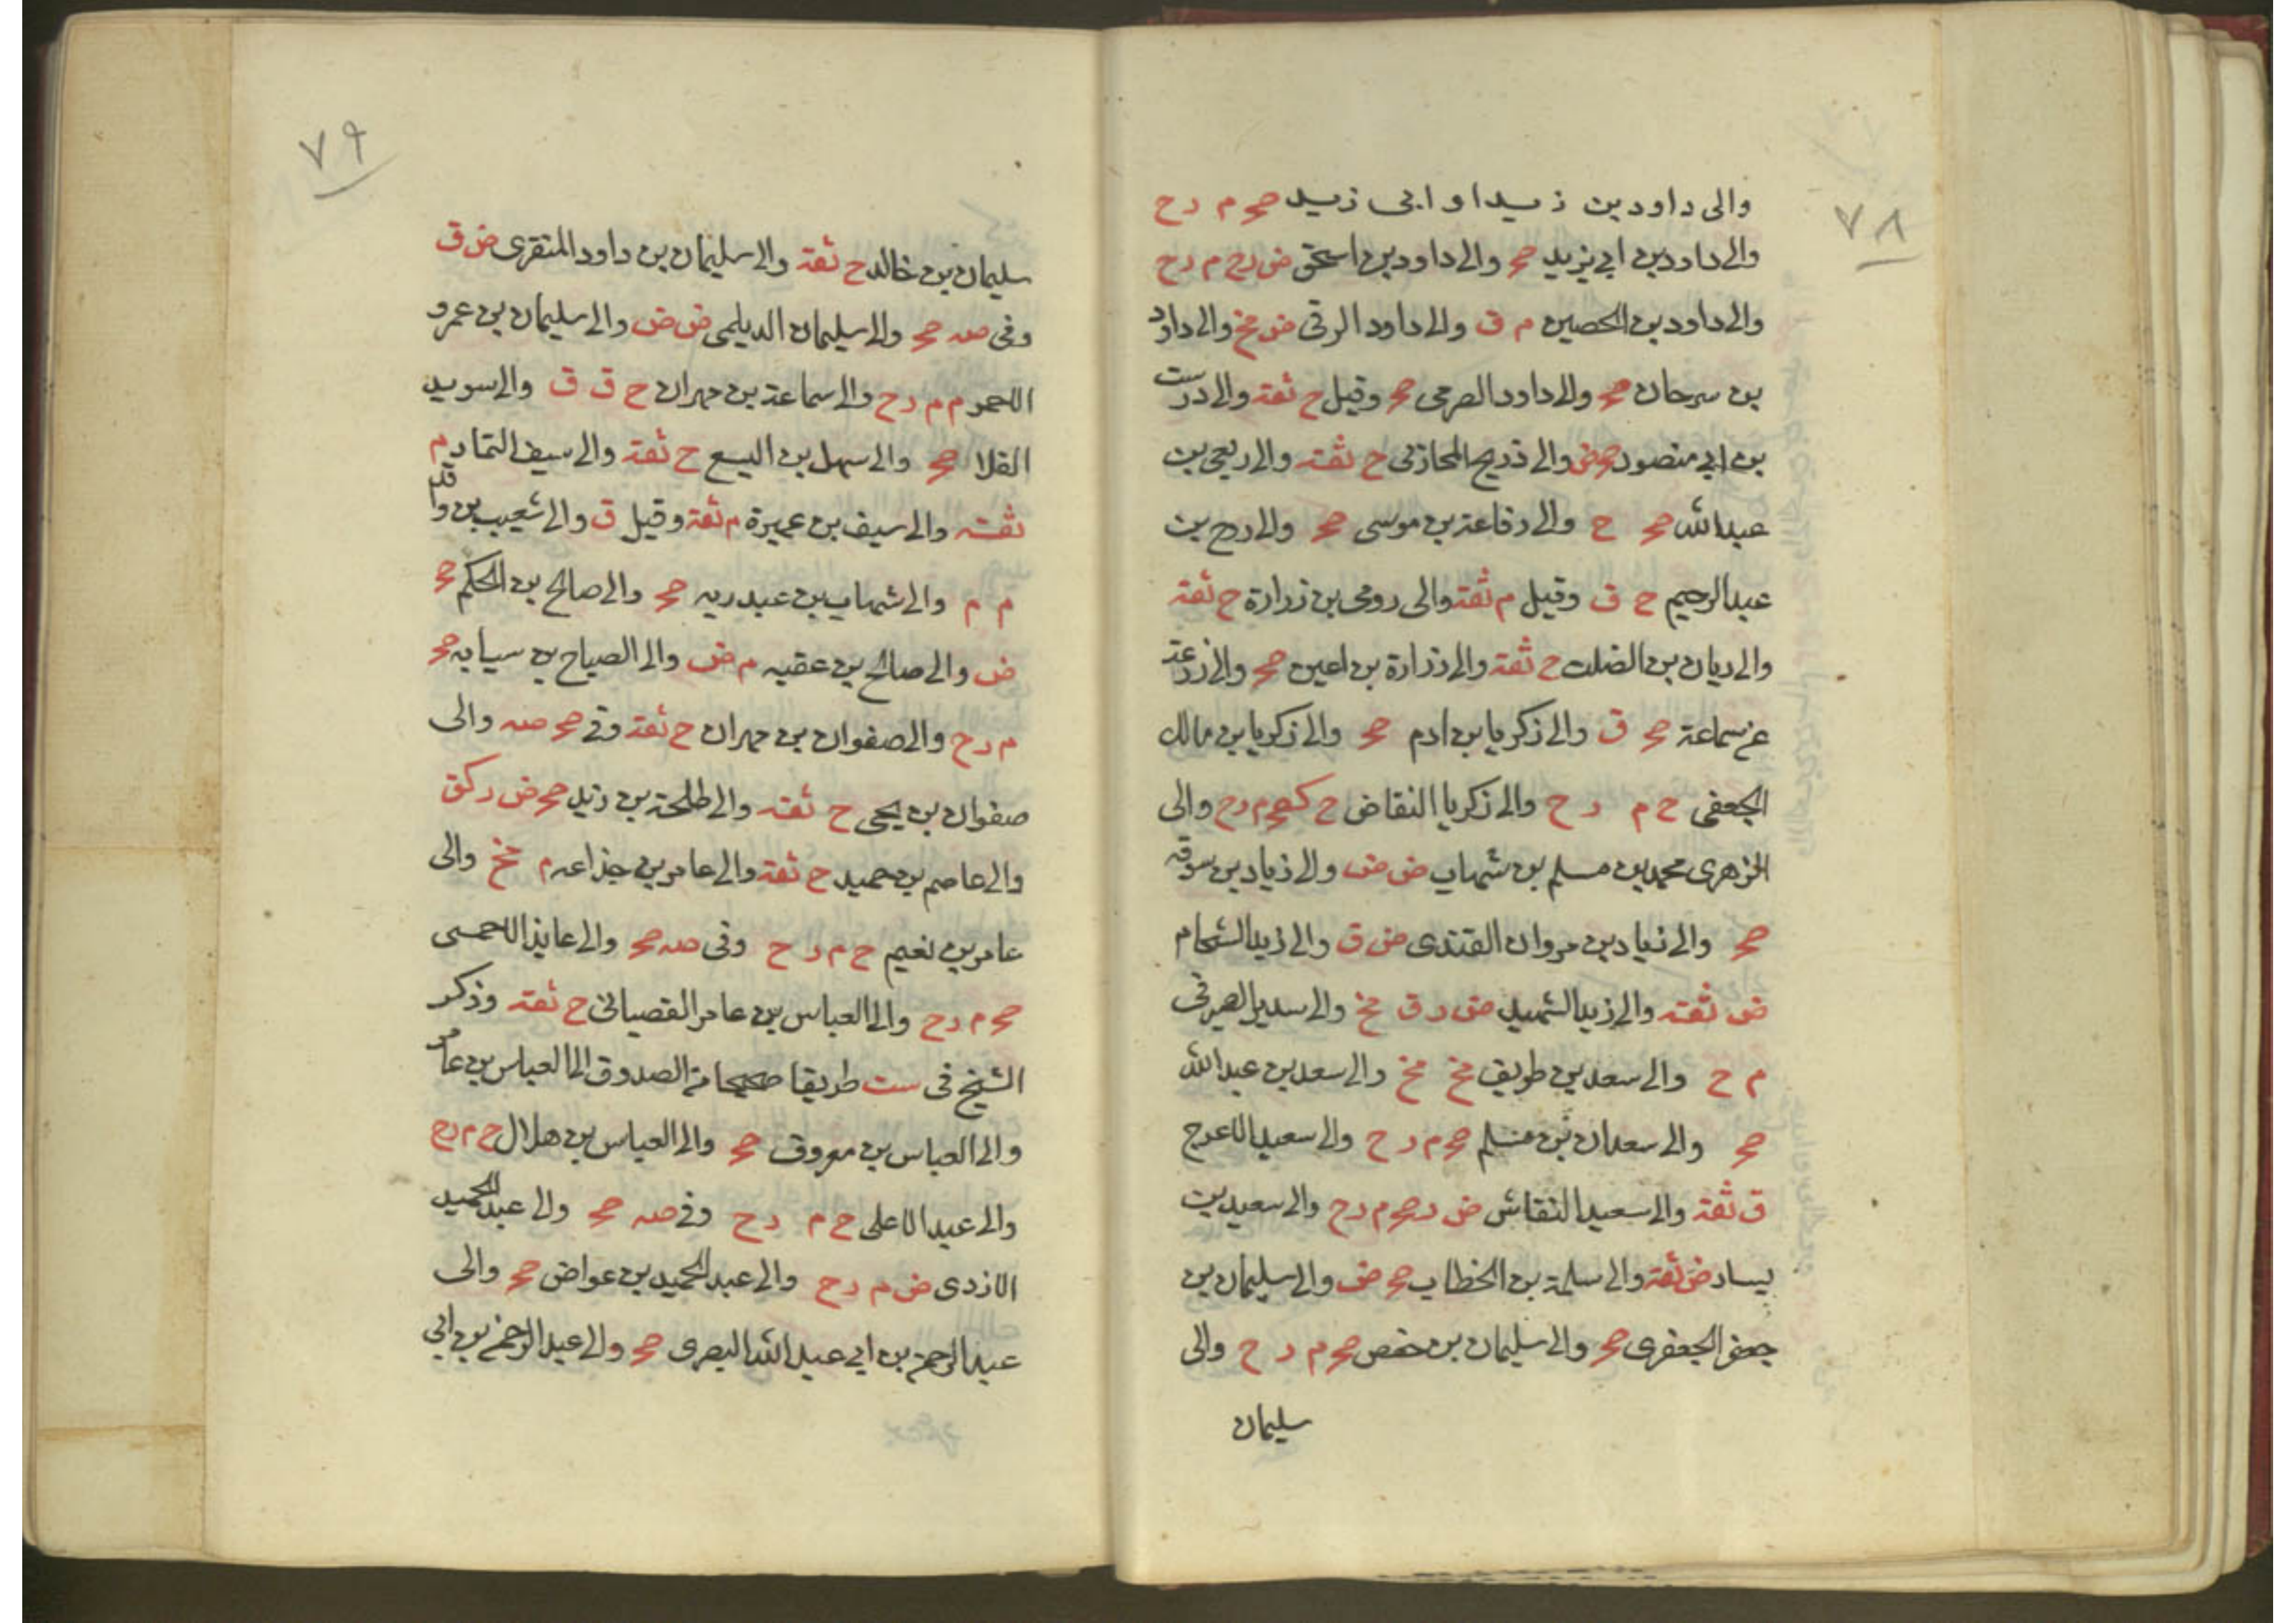 ٧٨
والى داود بن زيد او ابى زيد صح م د ح
والى داود بن ابي يزيد صح والى داود بن اسحق ض د ح م د ح
والى داود بن الحصين م ق والى داود الرقى ض مخ والى داود
بن سرحان صح والى داود الصرمى صح وقيل ح ثقة والى درست
بن ابي منصور صح ض والى ذريح المحاربى ح ثقة والى ربعى بن
عبدالله صح ح والى رفاعة بن موسى صح والى روح بن
عبدالرحيم ح ق وقيل م ثقة والى رومى بن زرارة ح ثقة
والى ريان بن الصلت ح ثقة والى زرارة بن اعين صح والى زرعة
عن سماعة صح ق والى زكريا بن ادم صح والى زكريا بن مالك
الجعفى ح م د ح والى زكريا النقاض ح كصح م د ح والى
الزهرى محمد بن مسلم بن شهاب ض ض والى زياد بن سوقه
صح والى زياد بن مروان القندى ض ق والى زيد الشحام
ض ثقة والى زيد الشهيد ض د ق مخ والى سدير الصيرفى
م ح والى سعد بن طريف مخ مخ والى سعد بن عبدالله
صح والى سعدان بن مسلم صح م د ح والى سعيد الاعرج
ق ثقة والى سعيد النقاش ض د صح م د ح والى سعيد بن
يسار ض ثقة والى سلمة بن الخطاب صح ض والى سليمان بن
جعفر الجعفرى صح والى سليمان بن حفص صح م د ح والى
سليمان
٧٩
سليمان بن خالد ح ثقة والى سليمان بن داود المنقرى ض ق
وفى صه صح والى سليمان الديلمى ض ض والى سليمان بن عمرو
الاحمر م م د ح والى سماعة بن مهران ح ق ق والى سويد
القلا صح والى سهل بن اليسع ح ثقة والى سيف التمار م
ثقته والى سيف بن عميرة م ثقة وقيل ق والى شعيب بن واقد
م م والى شهاب بن عبد ربه صح والى صالح بن الحكم صح
ض والى صالح بن عقبه م ض والى الصباح بن سيابه صح
م د ح والى صفوان بن مهران ح ثقة وفى صح صه والى
صفوان بن يحيى ح ثقته والى طلحة بن زيد صح ض د كق
والى عاصم بن حميد ح ثقة والى عامر بن جذاعه م مخ والى
عامر بن نعيم ح م د ح وفى صه صح والى عايذ الاحمسى
صح م د ح والى العباس بن عامر القصبانى ح ثقة وذكر
الشيخ فى ست طريقا صحيحا منه الصدوق الى العباس بن عامر
والى العباس بن معروف صح والى العباس بن هلال ح م د ح
والى عبد الاعلى ح م د ح وفى صه صح والى عبدالحميد
الازدى ض م د ح والى عبدالحميد بن عواض صح والى
عبدالرحمن بن ابي عبدالله البصرى صح والى عبدالرحمن بن ابي